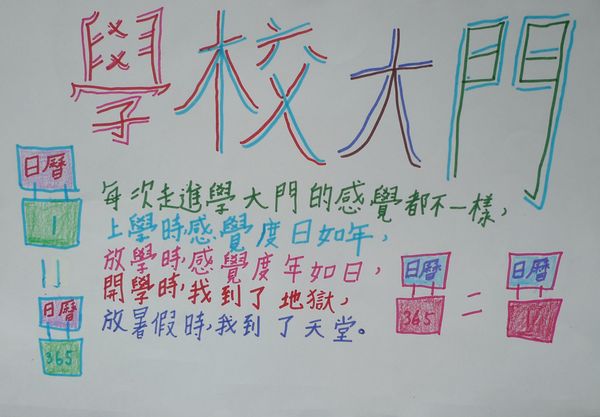 學校大門
每次走進學大門的感覺都不一樣，
上學時，感覺度日如年，
放學時，感覺度年如日，
開學時，我到了地獄，
放暑假時，我到了天堂。
日曆
1
=
日曆
365
日曆
365
=
日曆
1